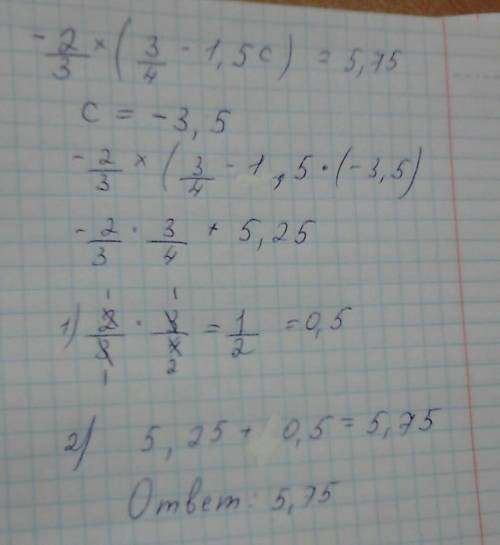 -2/3 × (3/4 - 1,5c) = 5,75
c = -3,5
-2/3 × (3/4 - 1,5 · (-3,5)
-2/3 · 3/4 + 5,25
1) 2/3 · 3/4 = 1/2 = 0,5
2) 5,25 + 0,5 = 5,75
Ответ: 5,75